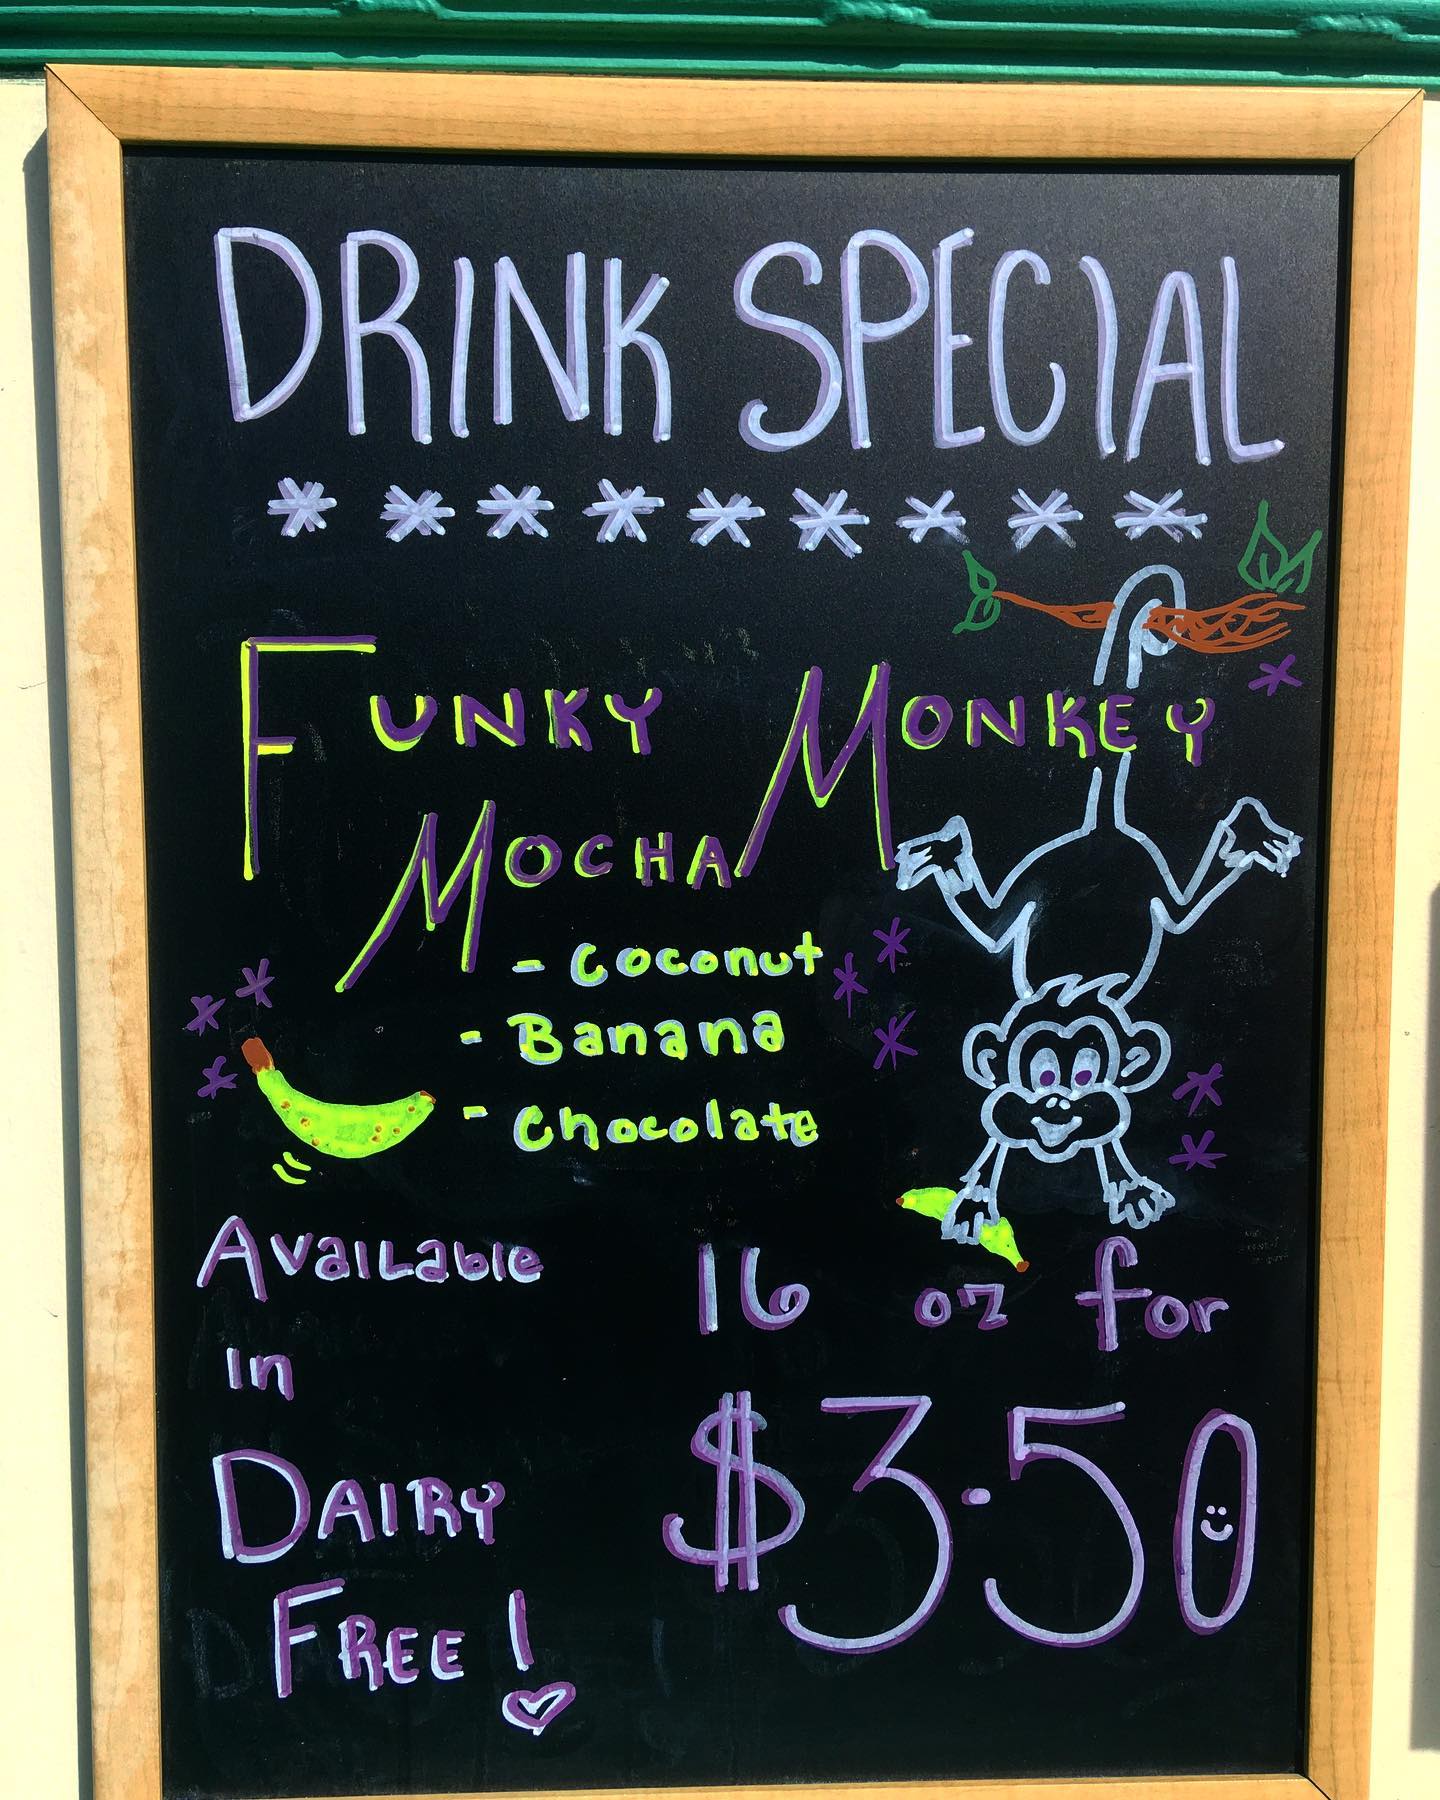 DRINK SPECIAL
* * * * * * * * *
FUNKY MONKEY
MOCHA
- Coconut
- Banana
- Chocolate
Available
in
DAIRY
FREE!
16 oz for
$3.50